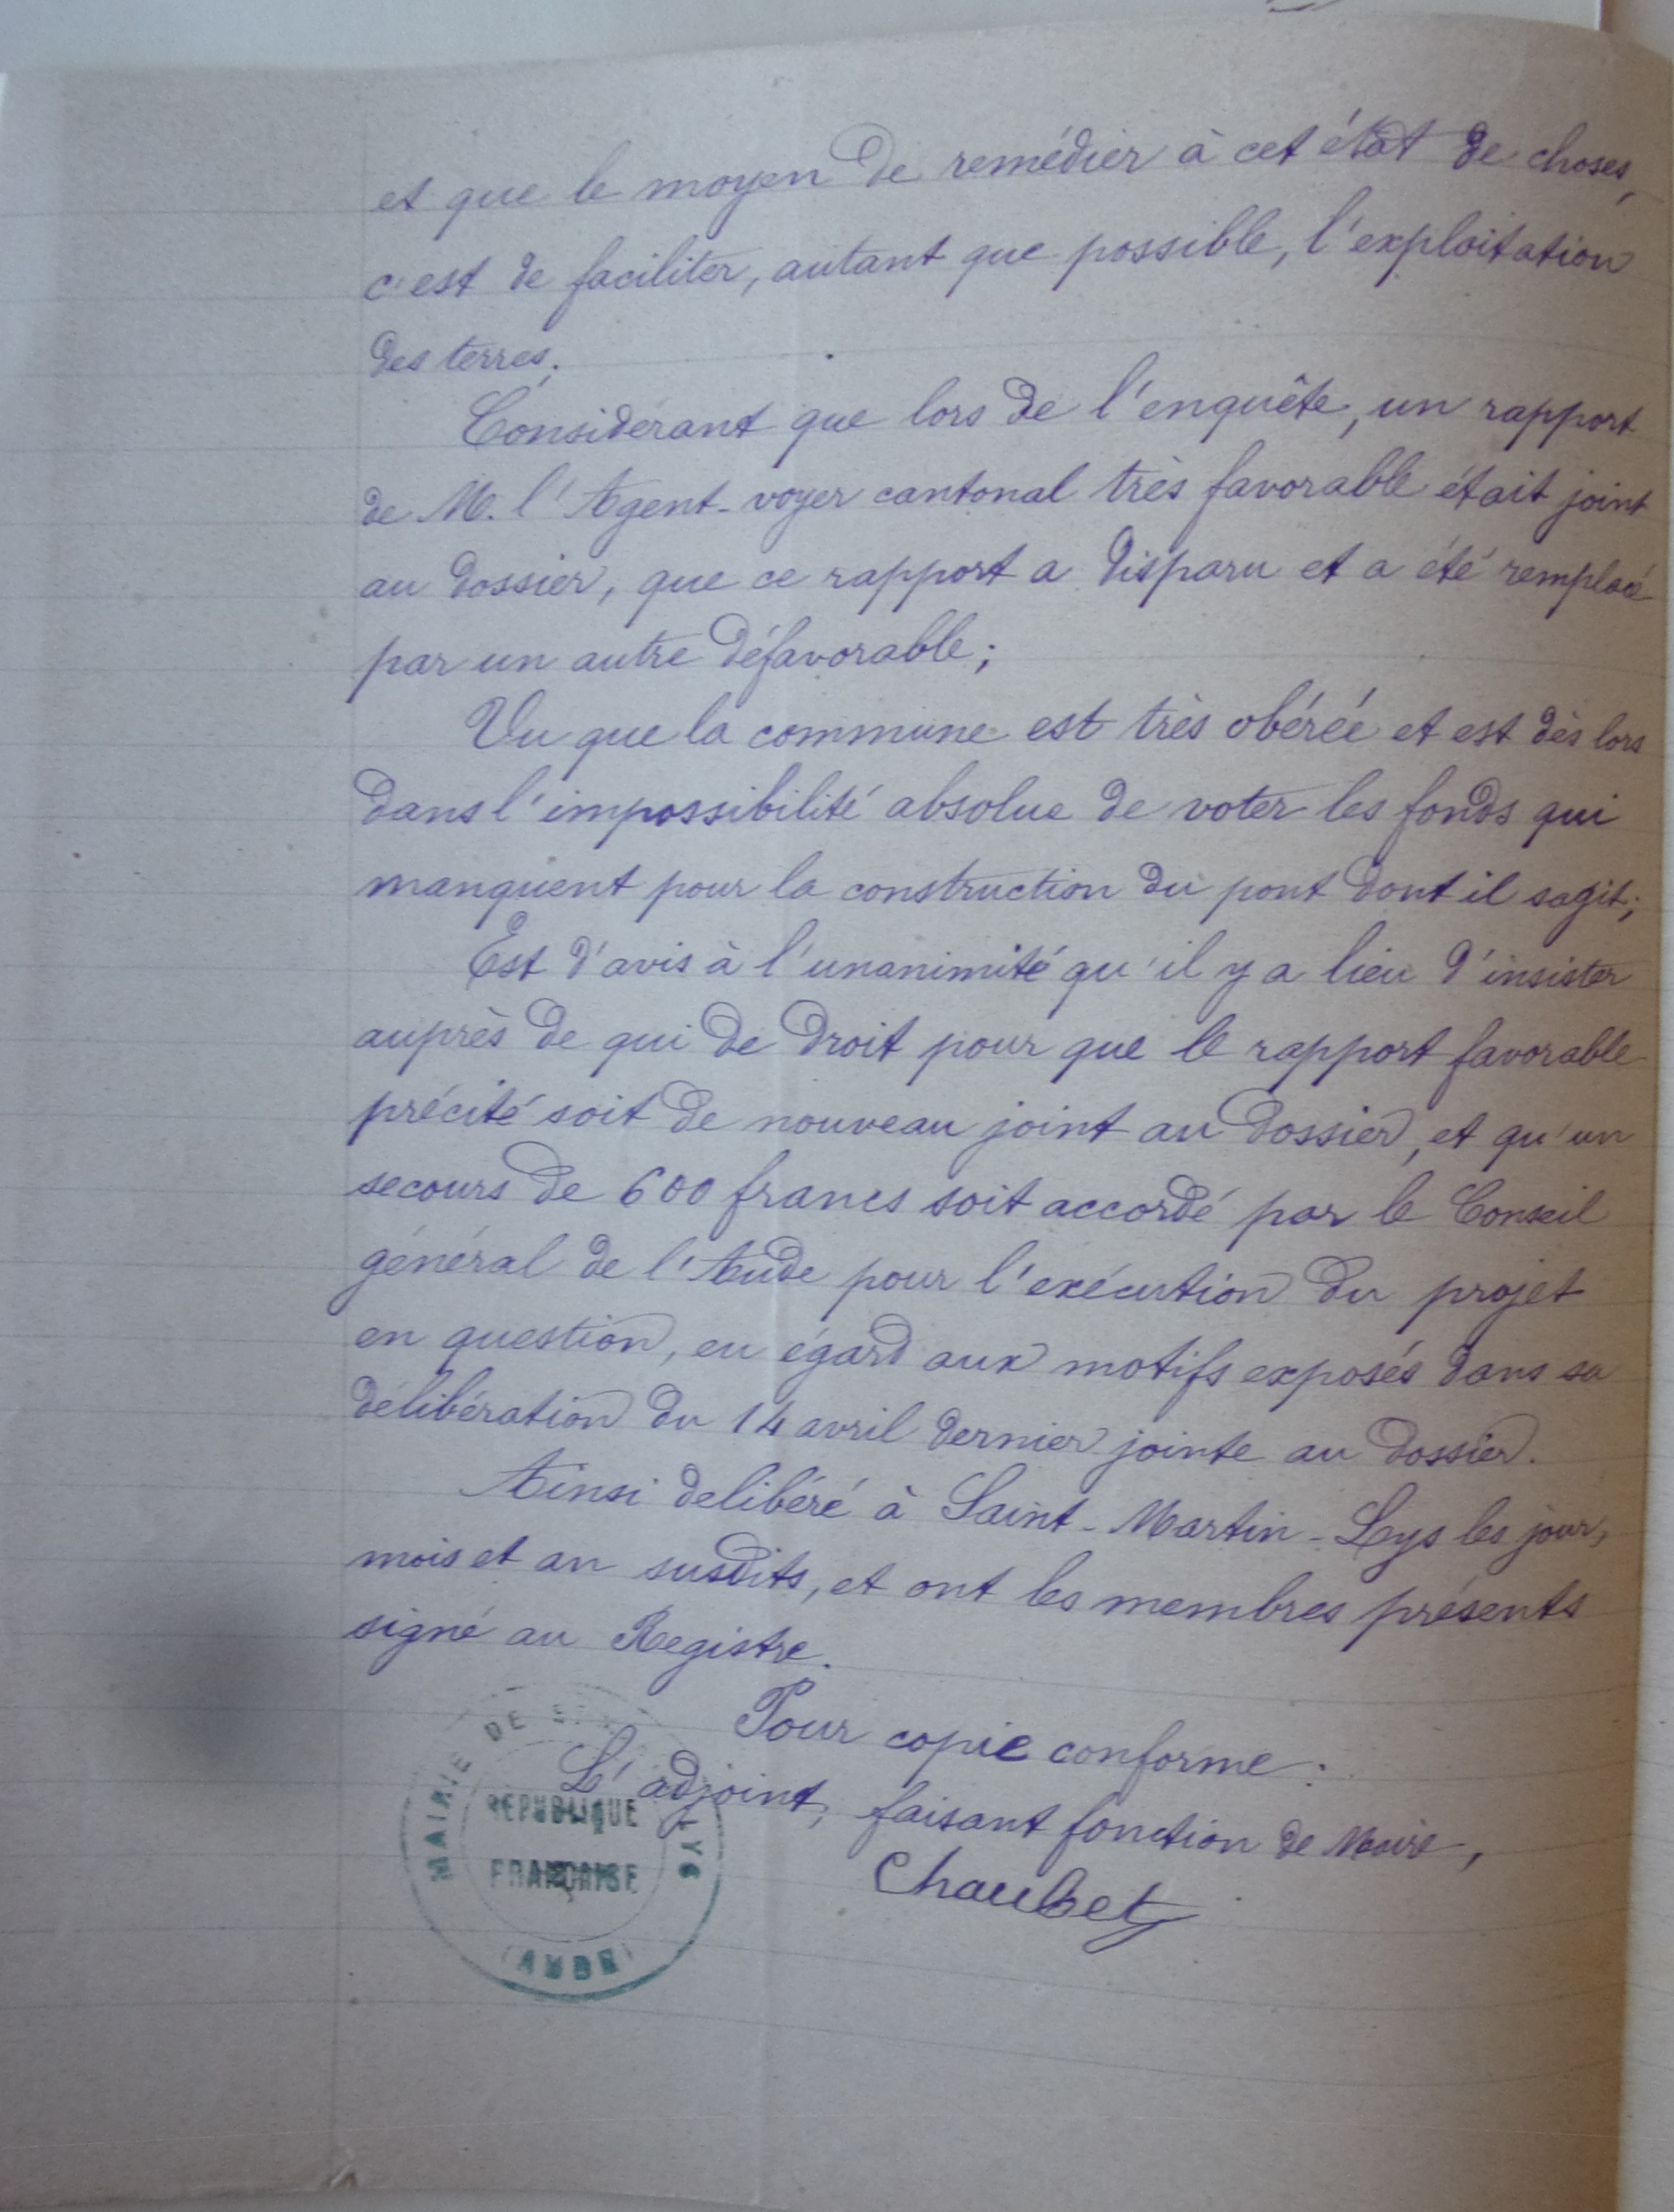 et que le moyen de remédier à cet état de choses,
c'est de faciliter, autant que possible, l'exploitation
des terres;
Considérant que lors de l'enquête, un rapport
de M. l'Agent-voyer cantonal très favorable était joint
au dossier, que ce rapport a disparu et a été remplacé
par un autre défavorable;
Vu que la commune est très obérée et est dès lors
dans l'impossibilité absolue de voter les fonds qui
manquent pour la construction du pont dont il sagit;
Est d'avis à l'unanimité qu'il y a lieu d'insister
auprès de qui de droit pour que le rapport favorable
précité soit de nouveau joint au dossier, et qu'un
secours de 600 francs soit accordé par le Conseil
général de l'Aude pour l'exécution du projet
en question, eu égard aux motifs exposés dans sa
délibération du 14 avril dernier jointe au dossier.
Ainsi delibéré à Saint-Martin-Lys les jour,
mois et an susdits, et ont les membres présents
signé au Registre.
Pour copie conforme:
L'adjoint, faisant fonction de Maire,
Chaubet
MAIRIE DE
RÉPUBLIQUE
FRANÇAISE
(AUDE)